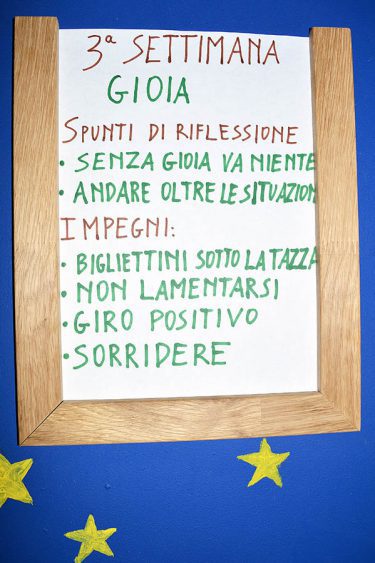 3ª SETTIMANA
GIOIA
SPUNTI DI RIFLESSIONE
• SENZA GIOIA VA NIENTE
• ANDARE OLTRE LE SITUAZION
IMPEGNI:
• BIGLIETTINI SOTTO LA TAZZA
• NON LAMENTARSI
• GIRO POSITIVO
• SORRIDERE